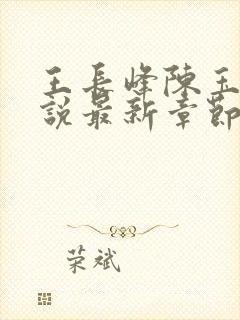 王長峰陳玉
說最新章節
荣斌